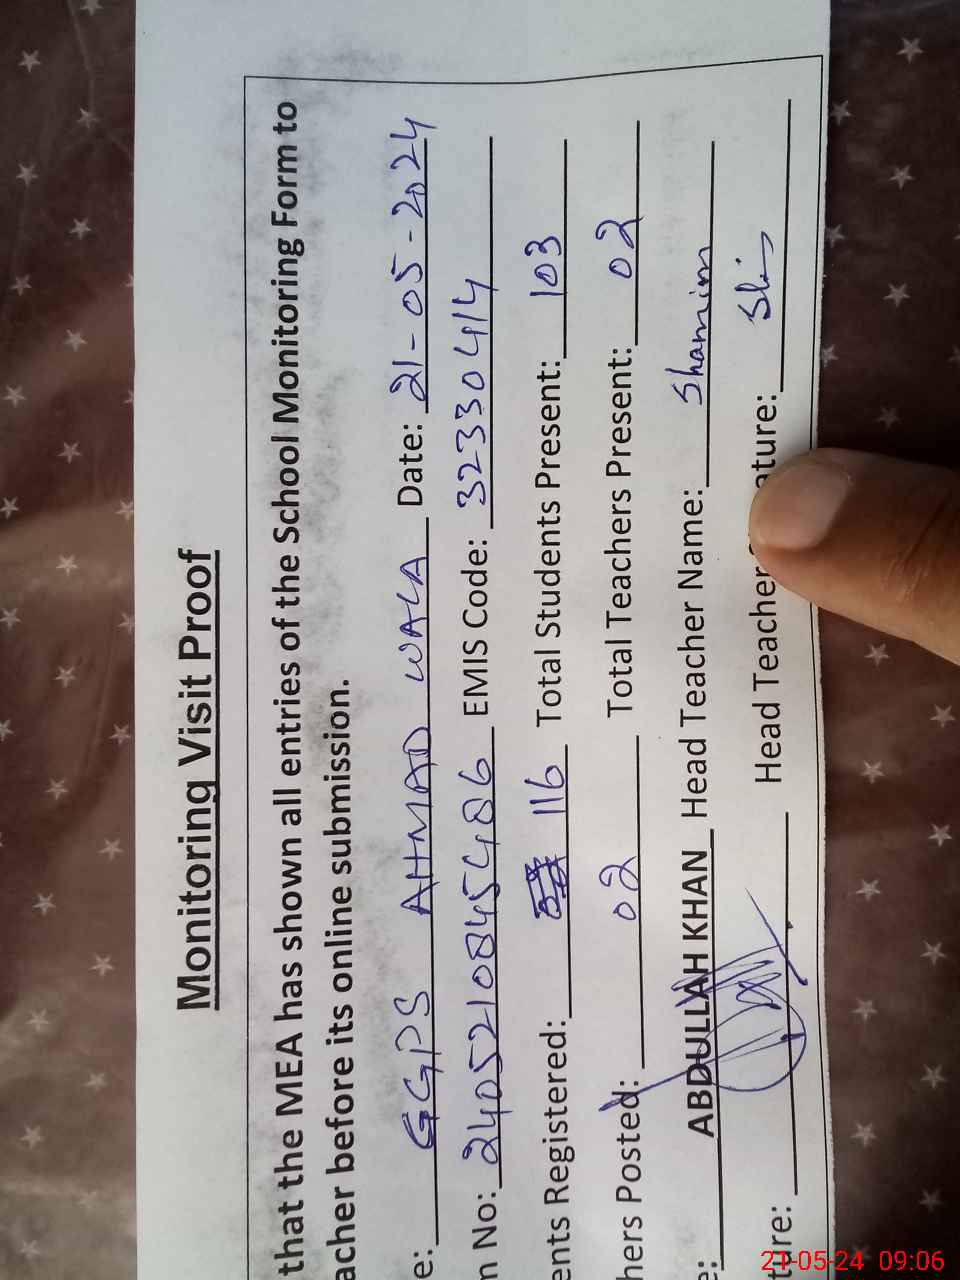 Monitoring Visit Proof
that the MEA has shown all entries of the School Monitoring Form to
acher before its online submission.
e: GGPS AHMAD WALA Date: 21-05-2024
n No: 2405210845486 EMIS Code: 32330414
ents Registered: 116 Total Students Present: 103
hers Posted: 02 Total Teachers Present: 02
e: ABDULLAH KHAN Head Teacher Name: Shamim
ture: Head Teacher ature:
21-05-24 09:06